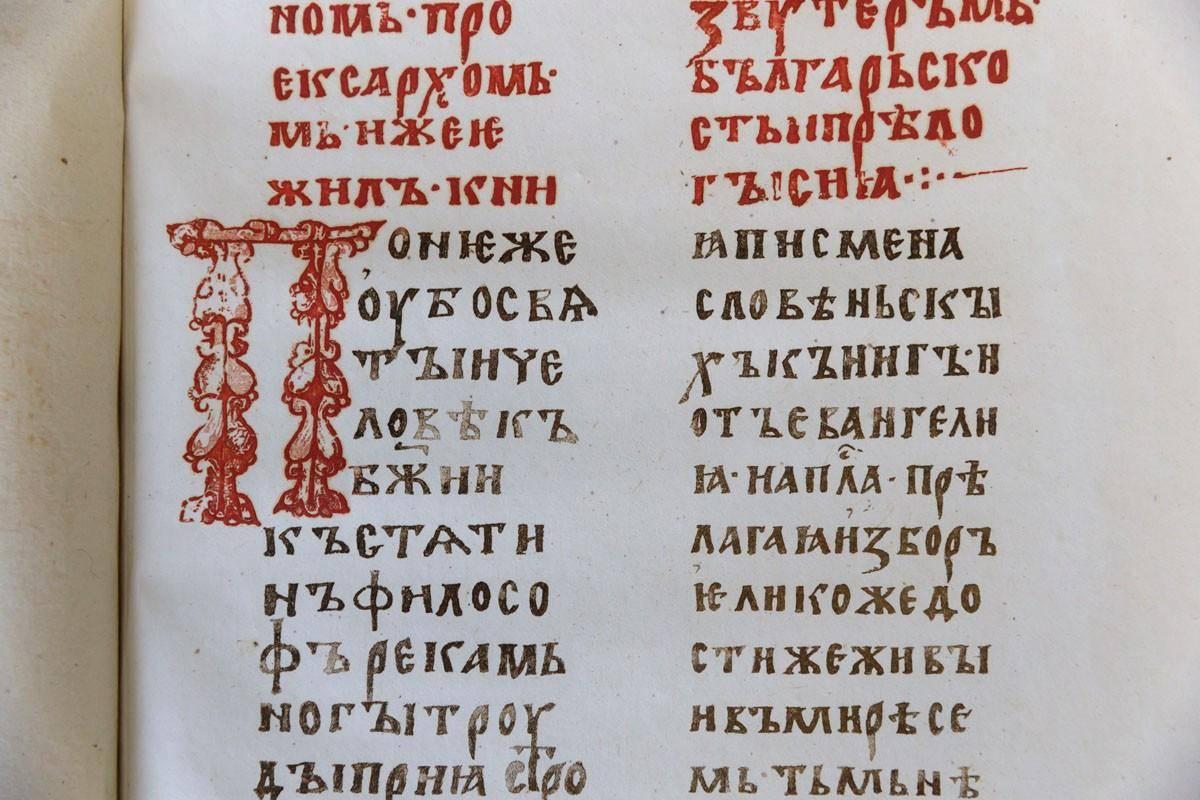 номь·про
ексархомь·
мь·нжеѥ
жилъ·кни
Понѥже
оубосвѧ
тыичє
ловѣкъ
бжии
къстѧти
нъфилосо
фъ рекамь
ногъітроу
дъіприꙗ стро
звутеръмь·
българьско
стьıпрѣло
гъıсиꙗ·:·
ꙗписмена
словѣньскъі
хъкънигъ·и
отъевангели
ꙗ·иапⷭ҇ла·прѣ
лагаꙗизборъ
ѥликожедо
стижеживъі
ивъмирѣсе
мь·тьмьнѣ